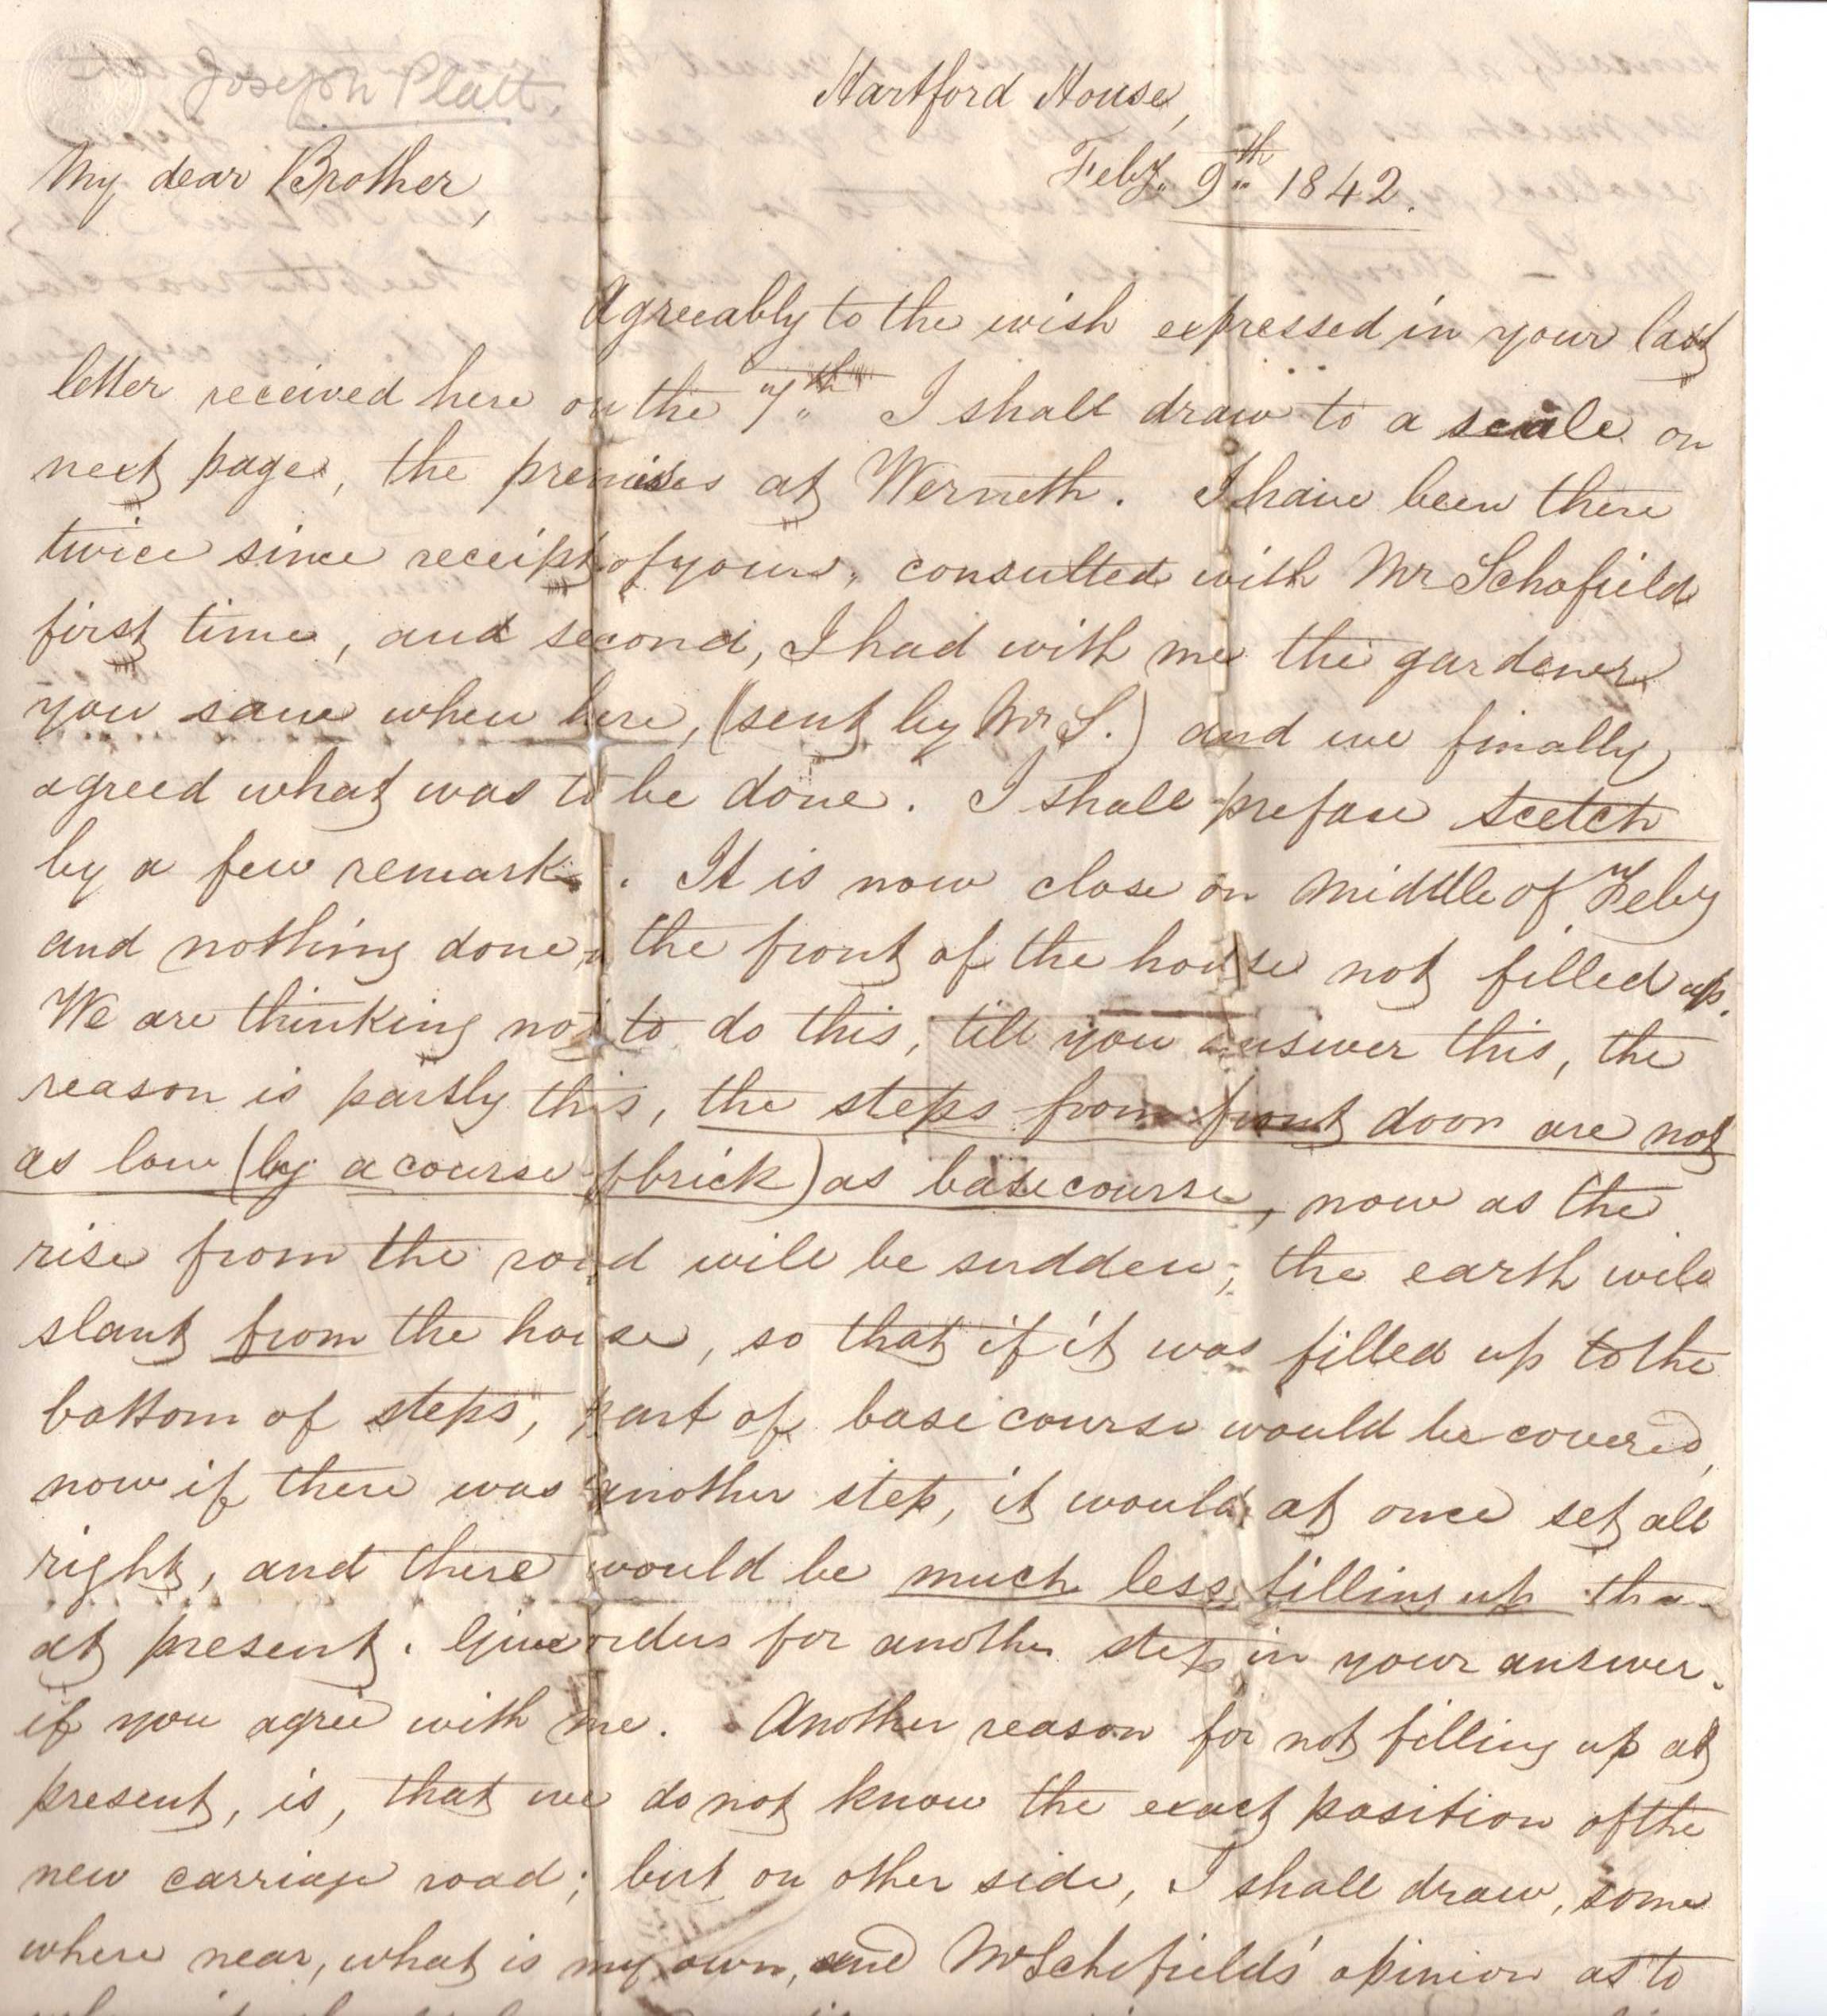 Joseph Platt.
Hartford House,
Feby. 9th 1842.
My dear Brother,
Agreeably to the wish expressed in your last
letter received here on the 7th I shall draw to a scale on
next page, the premises at Werneth. I have been there
twice since receipt of yours, consulted with Mr Schofield
first time, and second, I had with me the gardener
you saw when here, (sent by Mr S.) and we finally
agreed what was to be done. I shall preface scetch
by a few remarks. It is now close on middle of Feby
and nothing done, the front of the house not filled up.
We are thinking not to do this, till you answer this, the
reason is partly this, the steps from front door are not
as low (by a course of brick) as base course, now as the
rise from the road will be sudden, the earth will
slant from the house, so that if it was filled up to the
bottom of steps, part of base course would be covered,
now if there was another step, it would at once set all
right, and there would be much less filling up than
at present. Give orders for another step in your answer.
if you agree with me. Another reason for not filling up at
present, is, that we do not know the exact position of the
new carriage road; but on other side, I shall draw, some
where near, what is my own, and Mr Schofield's opinion as to